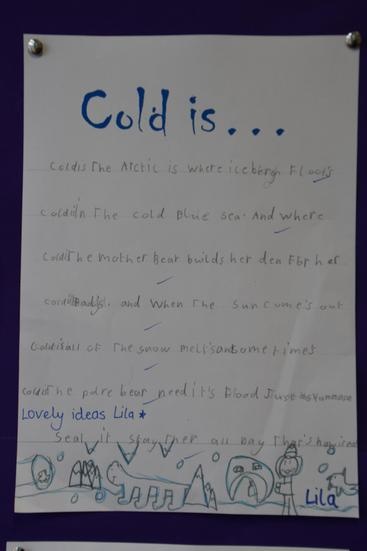 Cold is...
Cold is The Arctic is where icebergh Floots
Cold is in The cold Blue sea. And where
Cold is The Mother Bear builds her den For her
cold is and when The sun come's out
Cold is all of The snow melt's and some times
cold is The polre bear need it's Blood
Lovely ideas Lila *
Seal it stay Ther all Day That's how
Lila